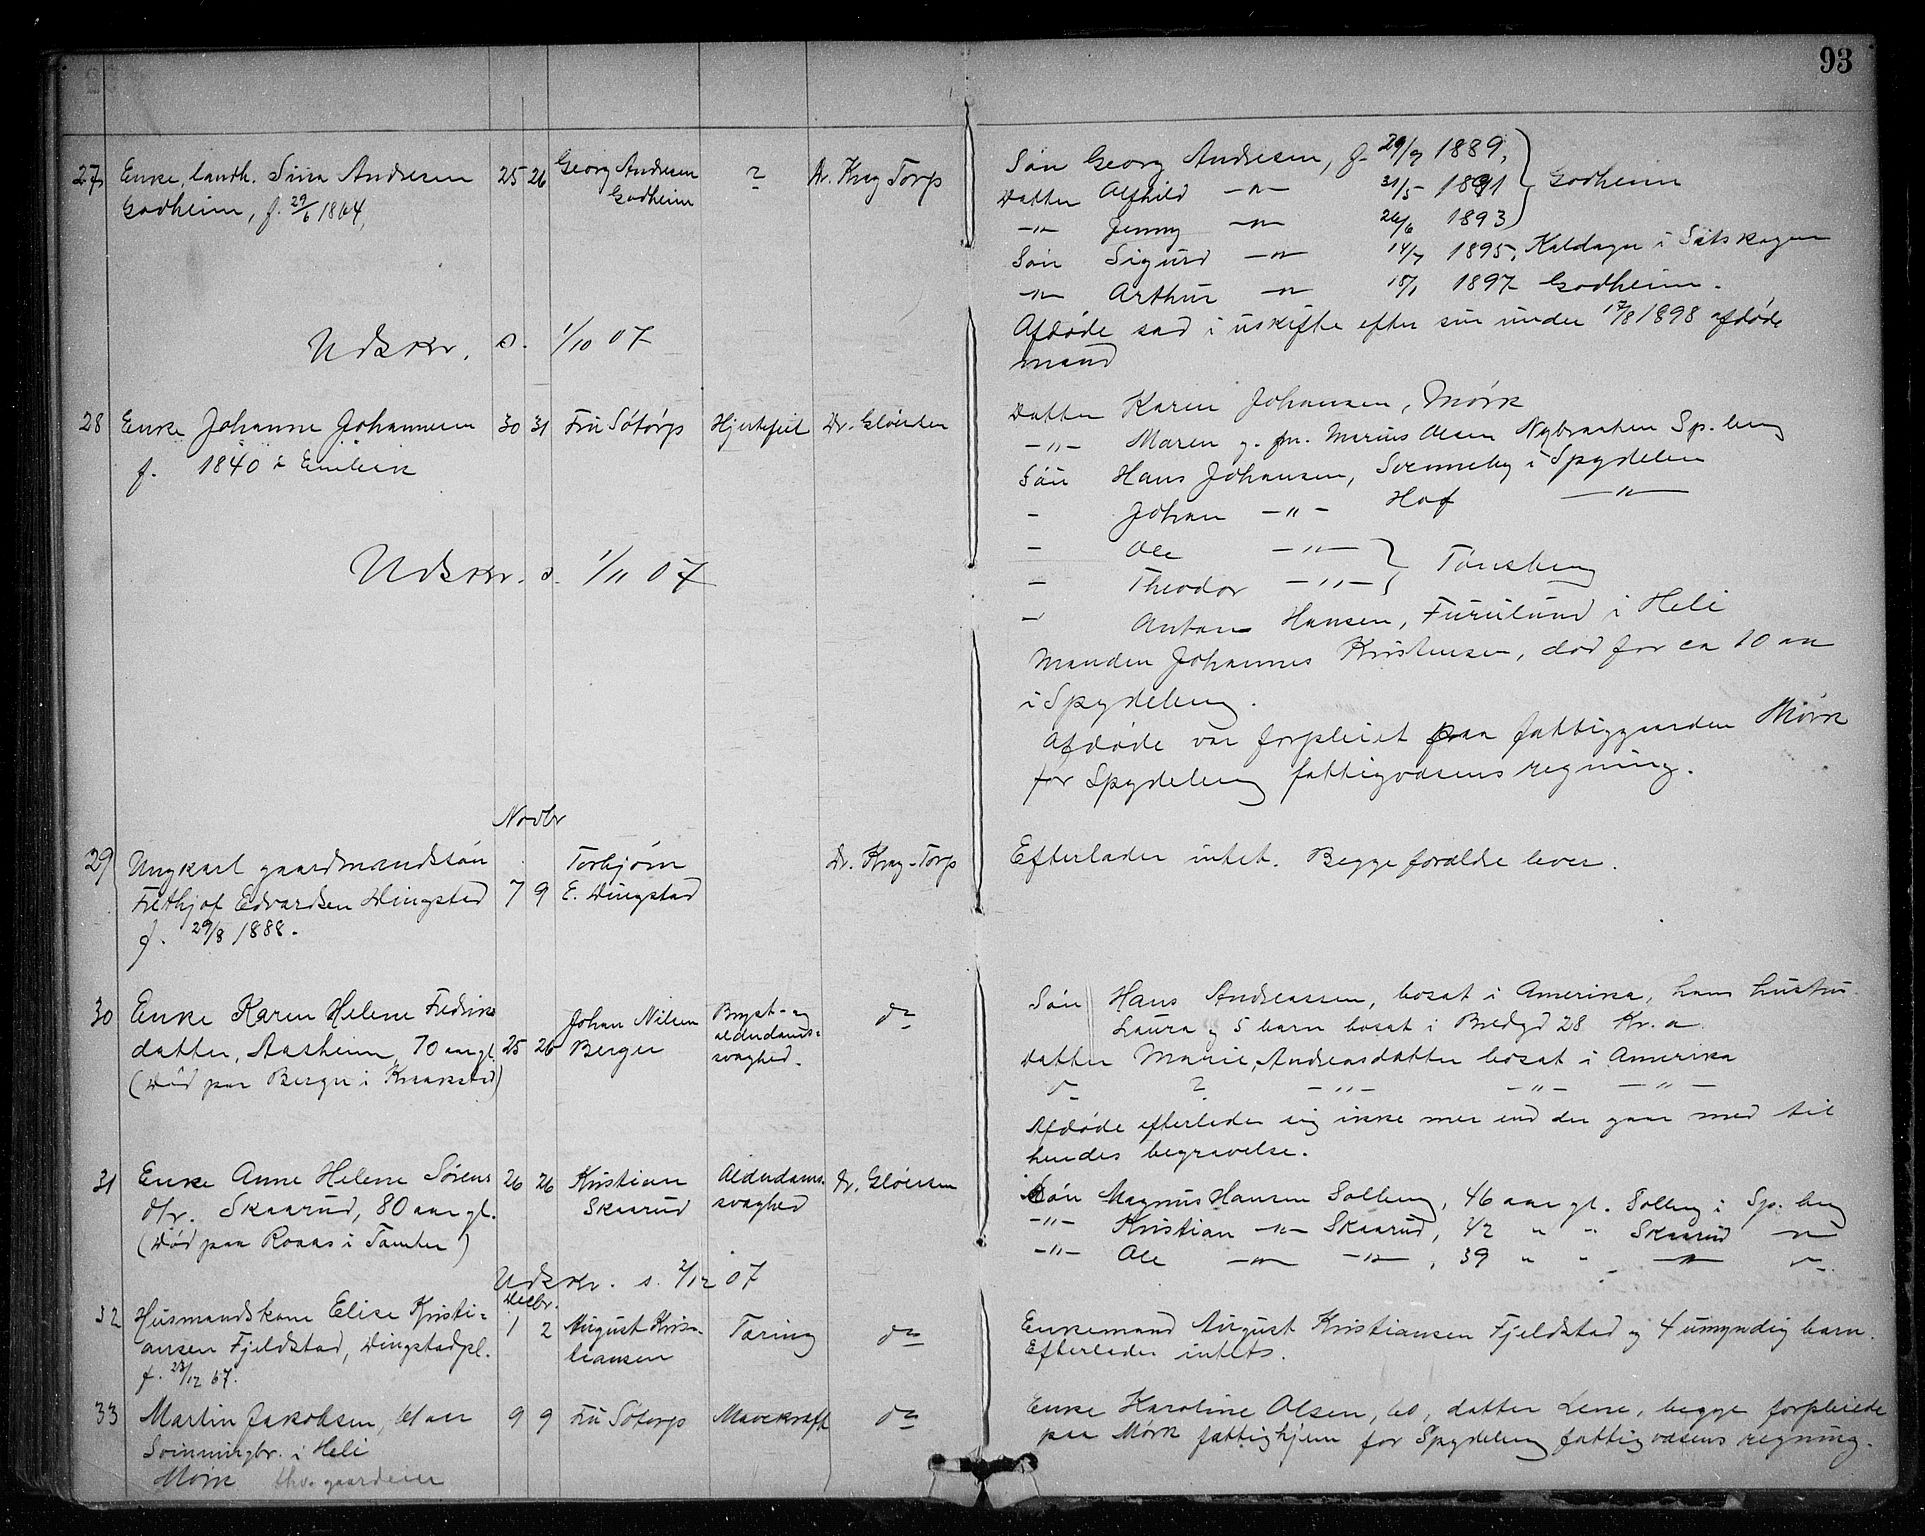 93
27 Enke, landh. Sina Andresen 25 26 Georg Andresen ? Dr. Krag Torp Søn Georg Andresen, f. 29/7 1889,
Godheim, f. 29/6 1864, Godheim Datter Alfhild —"— 31/5 1891 } Godheim
—"— Jenny —"— 26/6 1893
Søn Sigurd —"— 14/7 1895, i
—"— Arthur —"— 18/1 1897 Godheim.
Afdøde sad i uskifte efter sin under 17/8 1898 afdøde
Udskr. s. 1/10 07 mand
28 Enke Johanne Johannesen 30 31 Fru Søtorp Hjertefeil Dr. Gløersen Datter Karen Johansen, Mørk
f. 1840 —"— Maren g. m. Marius Olsen Nybraaten Sp.berg
Søn Hans Johansen, Svenneby i Spydeberg
- Johan —"— Hof —"—
- Ole —"— } Tønsberg
Udskr. s. 1/11 07 - Theodor —"—
- Anton Hansen, Furulund i Heli
Manden Johannes Kristensen, død for ca 10 aar
i Spydeberg.
Afdøde var forpleiet paa fattiggaarden Mørk
for Spydeberg fattigvæsens regning.
Novbr
29 Ungkarl gaardmandssøn Torbjørn Dr. Krag-Torp Efterlader intet. Begge forældre lever.
Frithjof Edvardsen Dingstad 7 9 E. Dingstad
f. 29/8 1888.
30 Enke Karen Helene Fredriks Johan Nilsen Bryst- og do Søn Hans Andreassen, bosat i Amerika, hans hustru
datter, Aasheim, 70 aar gl. 25 26 Berger alderdoms- Laura og 5 barn bosat i Bredgd 28 Kr.a.
(Død paa Berger i Kraakstad) svaghed. Datter Marie Andreasdatter bosat i Amerika
do ? —"— —"— —"—
Afdøde efterlader sig ikke mer end der gaar med til
hendes begravelse.
31 Enke Anne Helene Sørens 26 26 Kristian Alderdoms- Dr. Gløersen Søn Magnus Hansen Solberg, 46 aar gl. Solberg i Sp.berg
dtr. Skaarud, 80 aar gl. Skaarud svaghed —"— Kristian —"— Skaarud, 42 " " Skaarud —"—
(Død paa Roaas i Tomter) —"— Ole —"— —"—, 39 " " —"— do
Udskr. s. 2/12 07
Decbr.
32 Husmandskone Elise Kristi- 1 2 August Kris- Tæring do Enkemand August Kristiansen Fjeldstad og 4 umyndig barn.
ansen Fjeldstad, Dingstadpl. tiansen Efterlader intet.
f. 23/12 67.
33 Martin Jakobsen, 61 aar 9 9 Fru Søtorp Mavekræft do Enke Karoline Olsen, 60, datter Lene, begge forpleiede
i Heli paa Mørk fattighjem for Spydeberg fattigvæsens regning.
Mørk fhv. gaardeier